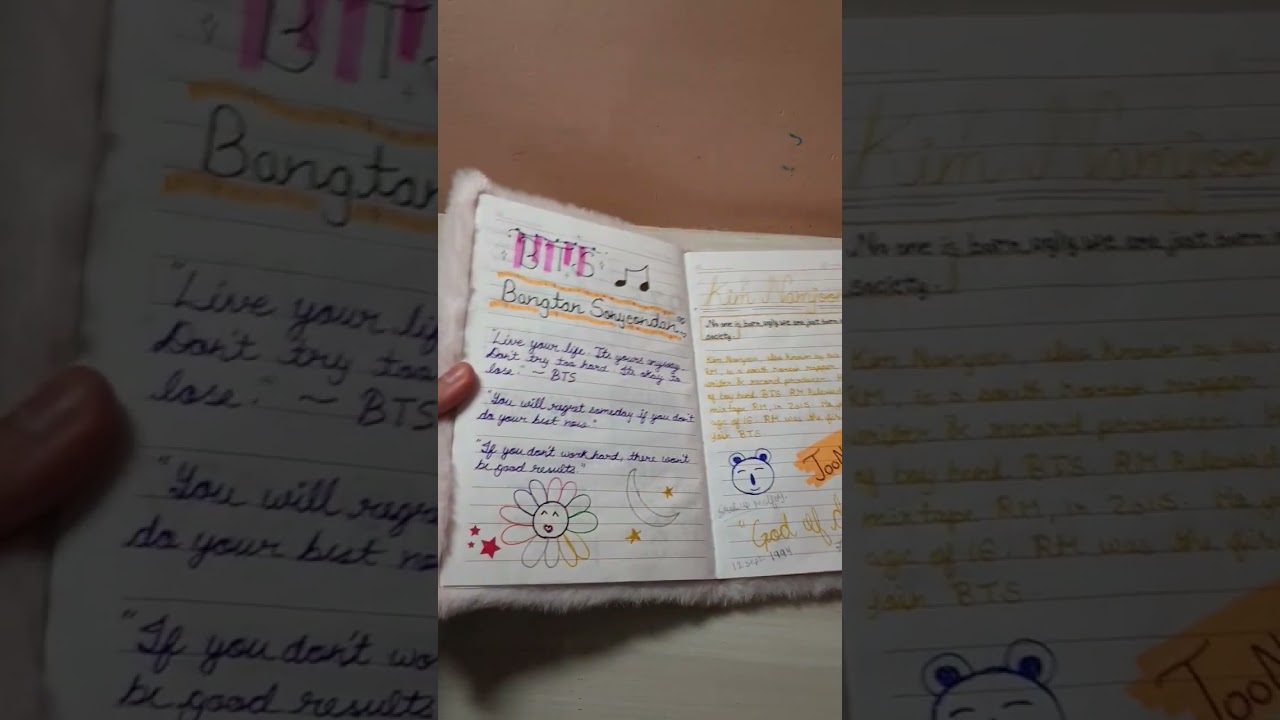 BTS
Bangtan Sonyeondan
"Live your life. Its yours anyway.
Don't try too hard. Its okay to
lose." ~ BTS
"You will regret someday if you don't
do your best now."
"If you don't work hard, there won't
be good results."
Kim Namjoon
No one is born ugly we are just born
society.
Kim Namjoon also known by
RM is a south korean rapper
writer & record producer
of boy band BTS. RM
mixtape RM, in 2015. He
age of 16. RM was the first
join BTS
JOON
"God of d
12 sept 1994